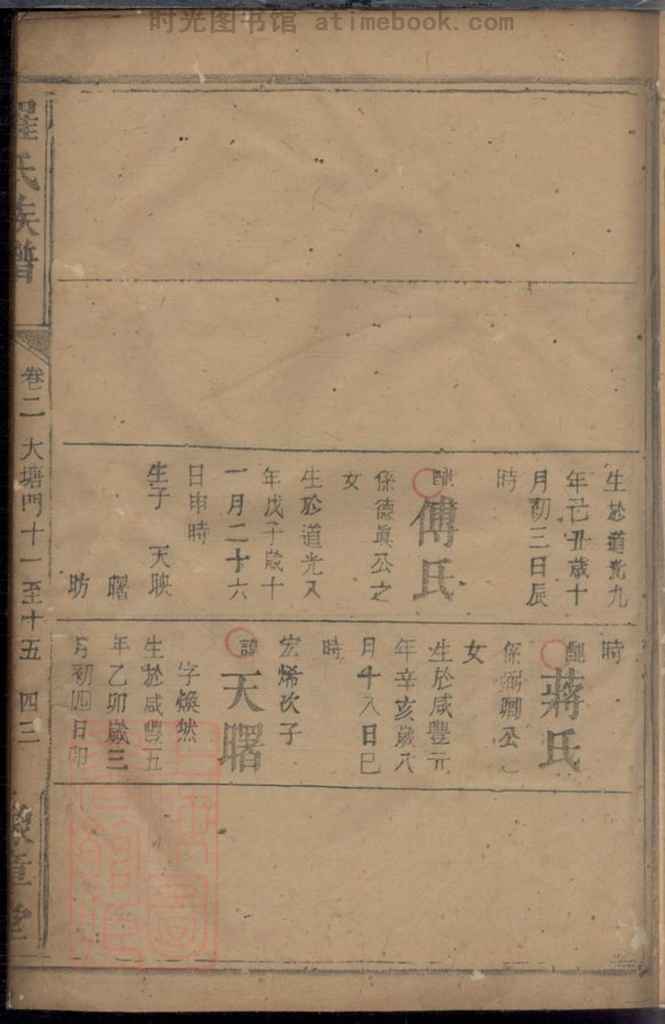 时光图书馆 atimebook.com
生於道光九
年己丑歲十
月初三日辰
時
配傅氏
係德眞公之
女
生於道光八
年戊子歲十
一月二十六
日申時
生子 天映
曙
昉
時
配蔣氏
係公之
女
生於咸豐元
年辛亥歲八
月十八日巳
時
宏烯次子
諱天曙
字煥然
生於咸豐五
年乙卯歲三
月初四日卯
羅氏族譜
卷二 大塘門十一至十五 四三
章堂